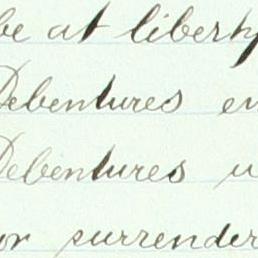 be at liberty
Debentures
Debentures
or surrender